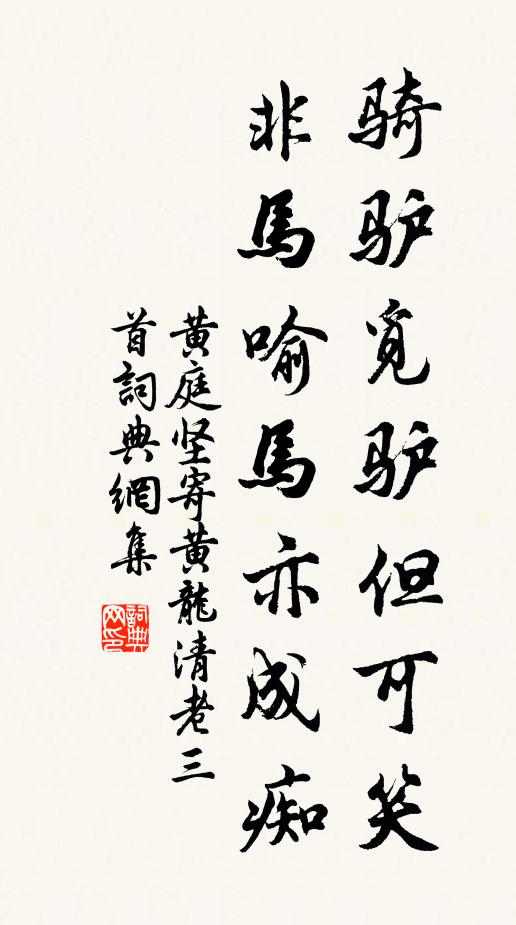 骑驴觅驴但可笑
非馬喻馬亦成痴
黄庭坚寄黄龍清老三
首詞典網集
詞典网印